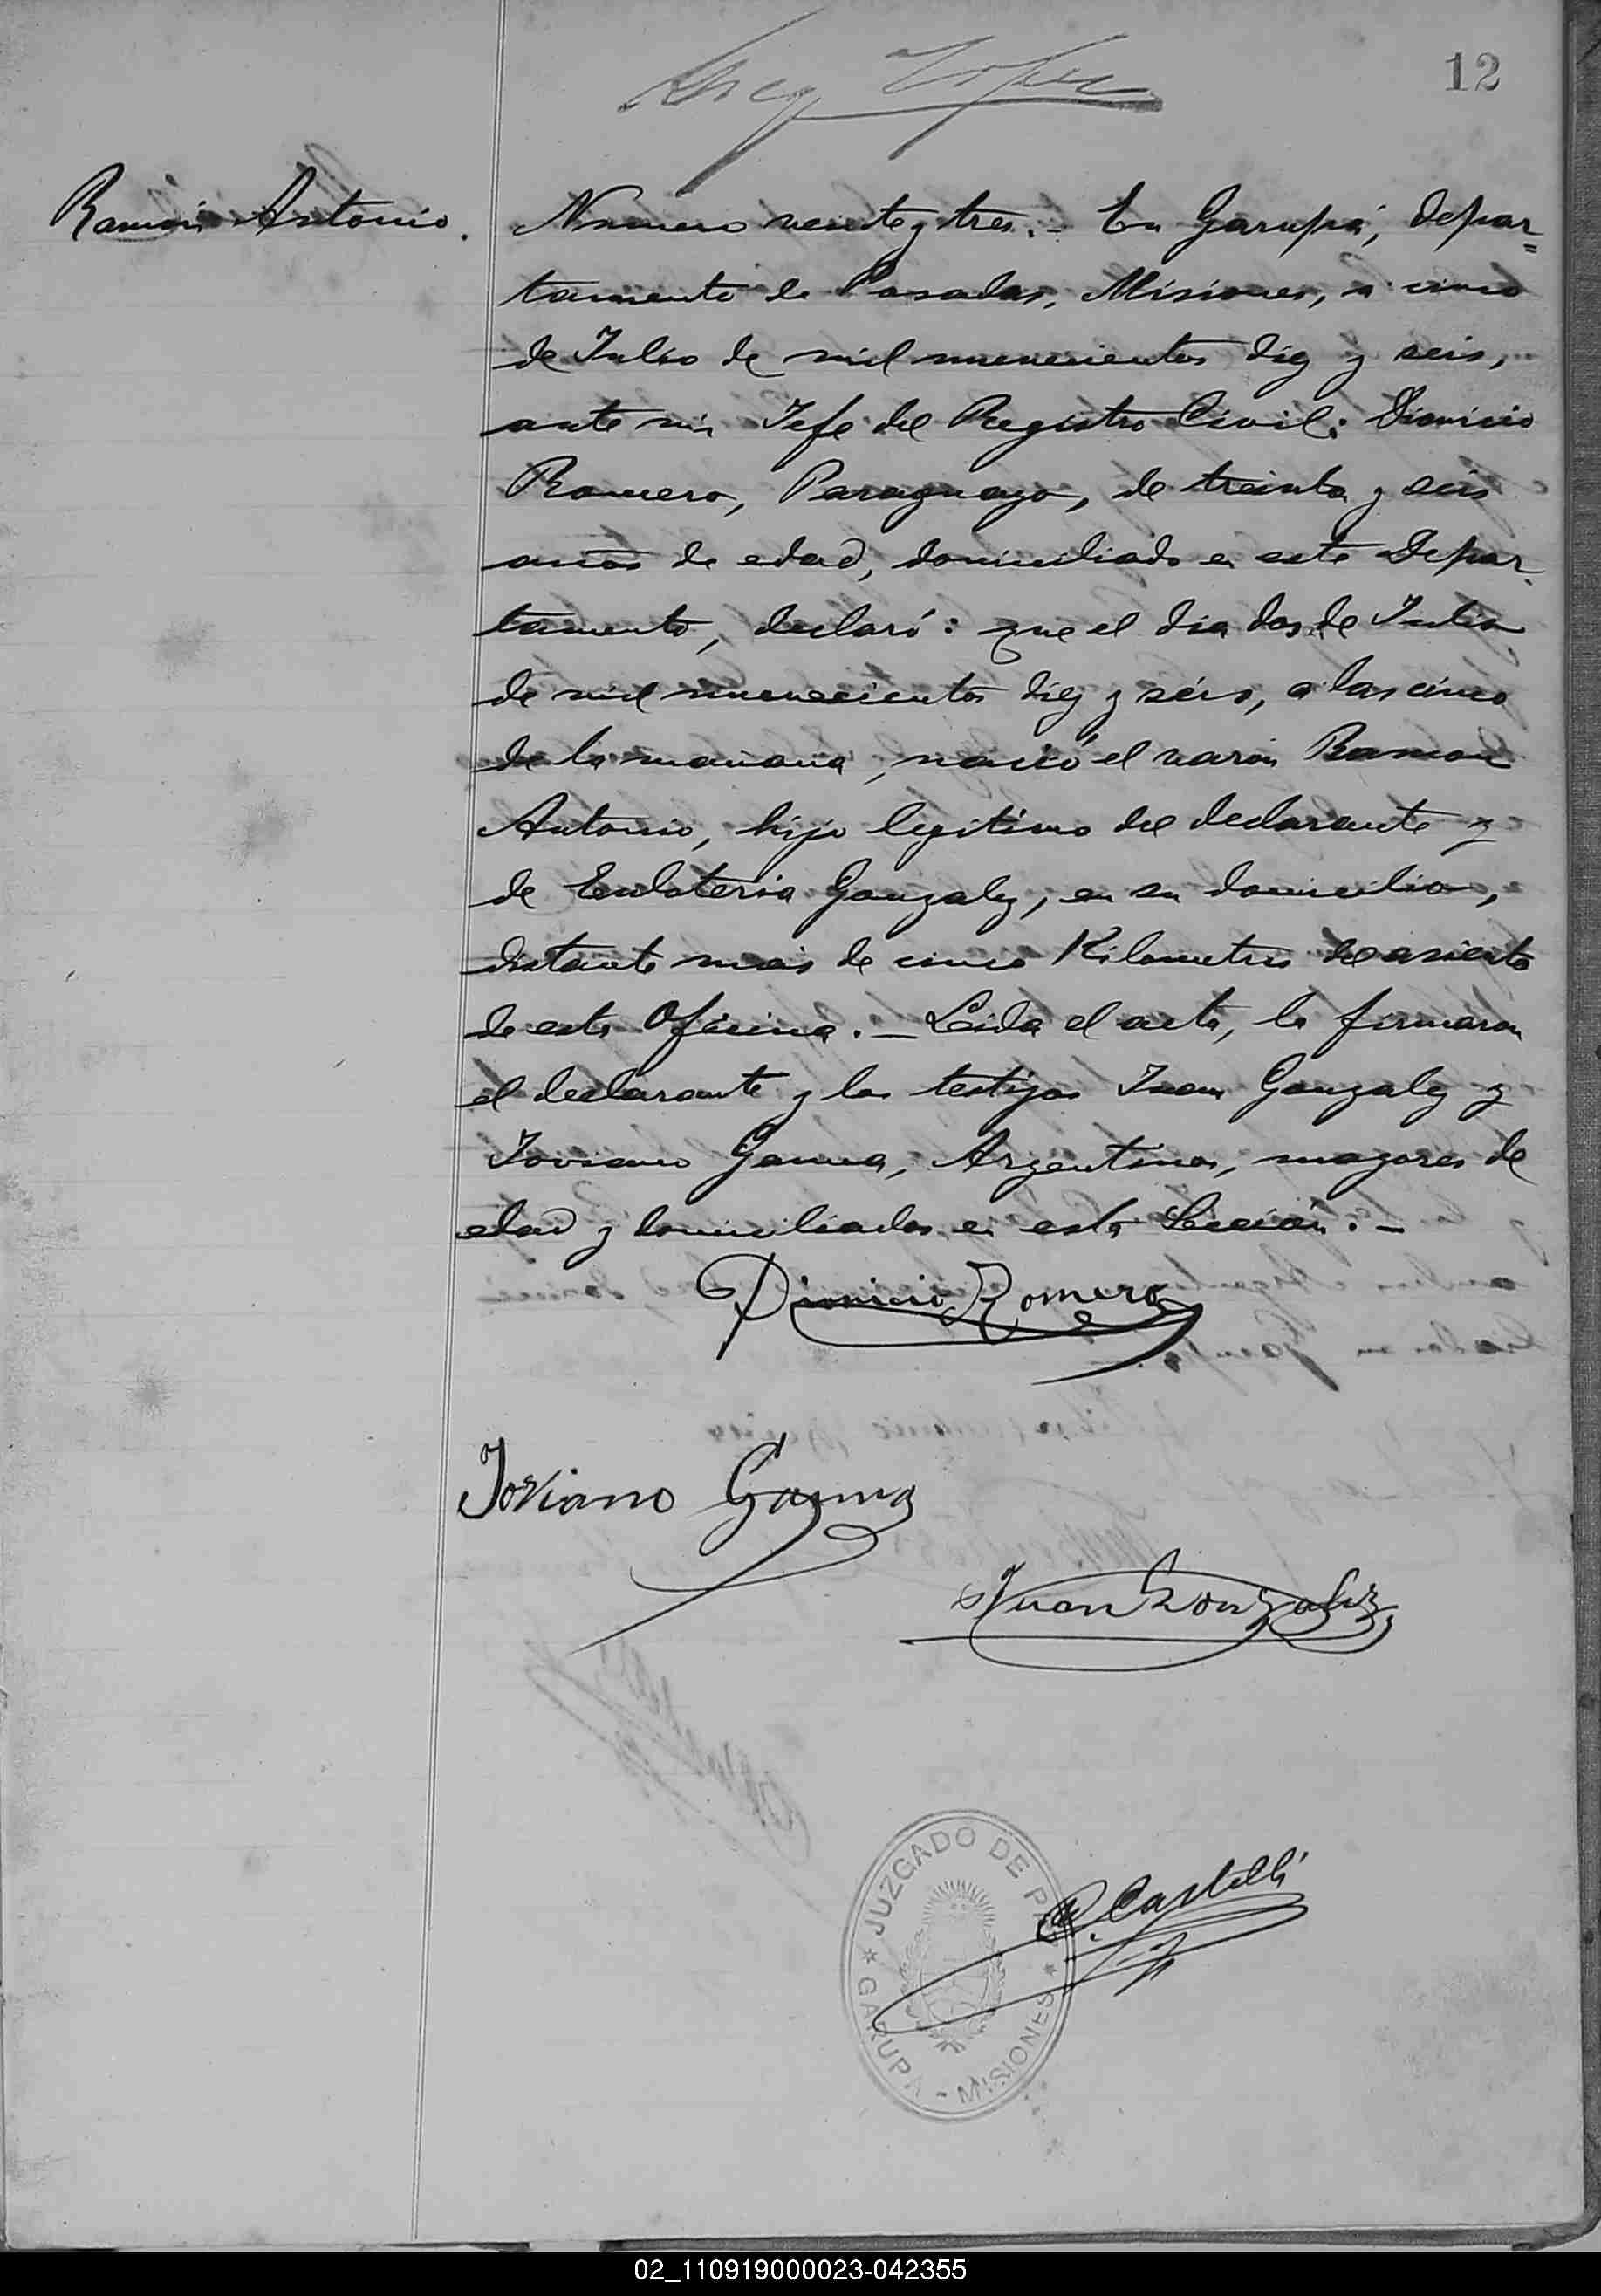 12
Ramón Antonio.
Número veinte y tres. - En Garupá, depar=
tamento de Posadas, Misiones, a cinco
de Julio de mil novecientos diez y seis,
ante mí, Jefe del Registro Civil: Dionicio
Romero, Paraguayo, de treinta y seis
años de edad, domiciliado en este Depar-
tamento, declaró: que el día dos de Julio
de mil novecientos diez y séis, a las cinco
de la mañana, nació el varón Ramón
Antonio, hijo legítimo del declarante y
de Eulateria Gonzalez, en su domicilio,
distante mas de cinco Kilometros del asiento
de esta Oficina. — Leida el acta, la firmaron
el declarante y los testigos Juan Gonzalez y
Joviano Gauna, Argentinos, mayores de
edad y domiciliados en esta Sección. -
Dionicio Romero
Joviano Gauna
Juan Gonzalez
JUZGADO DE PAZ
P. Castelli
* GARUPA - MISIONES *
02_110919000023-042355